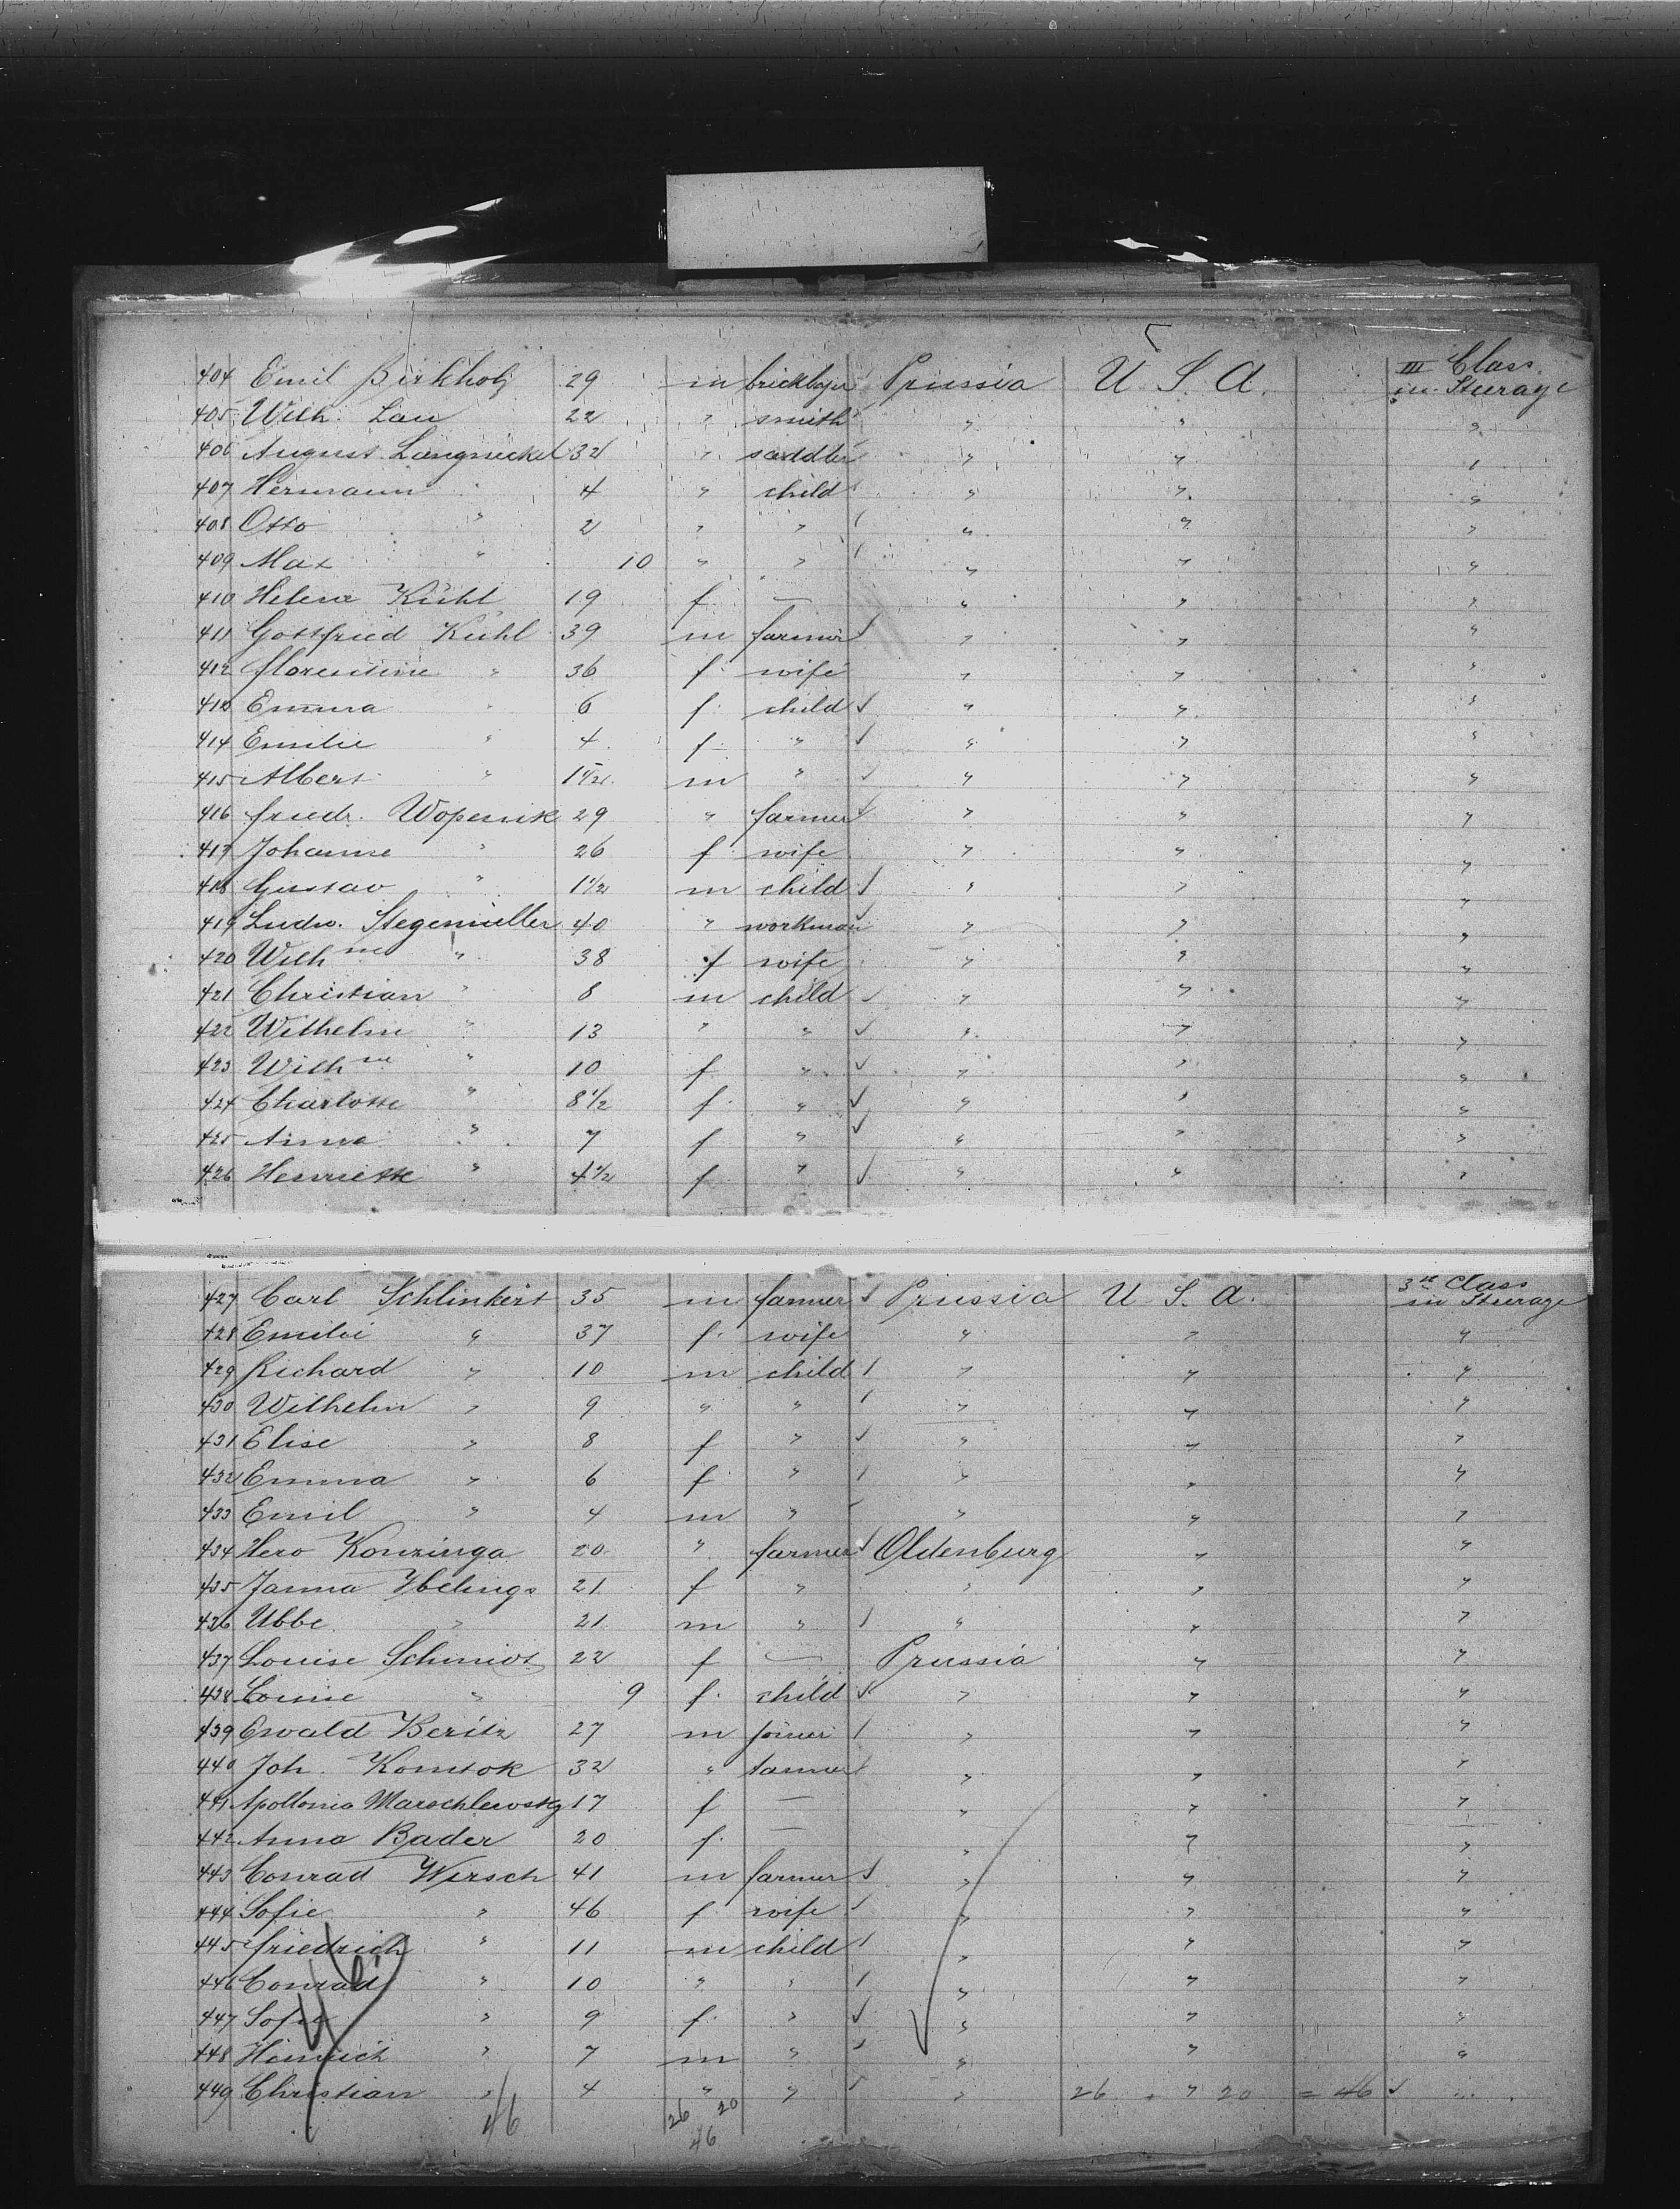 404 Emil Birkholz 29 m bricklayer Prussia U. S. A. III Class in Steerage
405 Wilh. Lau 22 " smith " " "
406 August Langnickel 32 " saddler " " "
407 Hermann " 4 " child " " "
408 Otto " 2 " " " " "
409 Max " 10 " " " " "
410 Helene Kühl 19 f — " " "
411 Gottfried Kühl 39 m farmer " " "
412 Florentine " 36 f. wife " " "
413 Emma " 6 f. child " " "
414 Emilie " 4 f. " " " "
415 Albert " m " " " "
416 Friedr. Wopenik 29 " farmer " " "
417 Johanne " 26 f. wife " " "
418 Gustav " 1 1/2 m child " " "
419 Ludw. Stegemüller 40 " workman " " "
420 Wilhne " 38 f wife " " "
421 Christian " 8 m child " " "
422 Wilhelm " 13 " " " " "
423 Wilhne " 10 f " " " "
424 Charlotte " 8 1/2 f. " " " "
425 Anna " 7 f " " " "
426 Henriette " 4 1/2 f " " " "
427 Carl Schlinkert 35 m farmer Prussia U. S. A. 3rd Class in Steerage
428 Emilie " 37 f. wife " " "
429 Richard " 10 m child " " "
430 Wilhelm " 9 " " " " "
431 Elise " 8 f " " " "
432 Emma " 6 f " " " "
433 Emil " 4 m " " " "
434 Hero Konzinga 20 " farmer Oldenburg " "
435 Janna Ybelings 21 f " " " "
436 Ubbe " 21 m " " " "
437 Louise Schmidt 22 f — Prussia " "
438 Louise " 9 f. child " " "
439 Ewald Beritz 27 m joiner " " "
440 Joh. Komtok 32 " " " "
441 Apollonia Marschlewsky 17 f — " " "
442 Anna Bader 20 f. — " " "
443 Conrad Wirsch 41 m farmer " " "
444 Sofie " 46 f. wife " " "
445 Friedrich " 11 m child " " "
446 Conrad " 10 " " " " "
447 Sofie " 9 f. " " " "
448 Heinrich " 7 m " " " "
449 Christian " 4 " " " 26 " 20 = 46 "
46 26 20
46